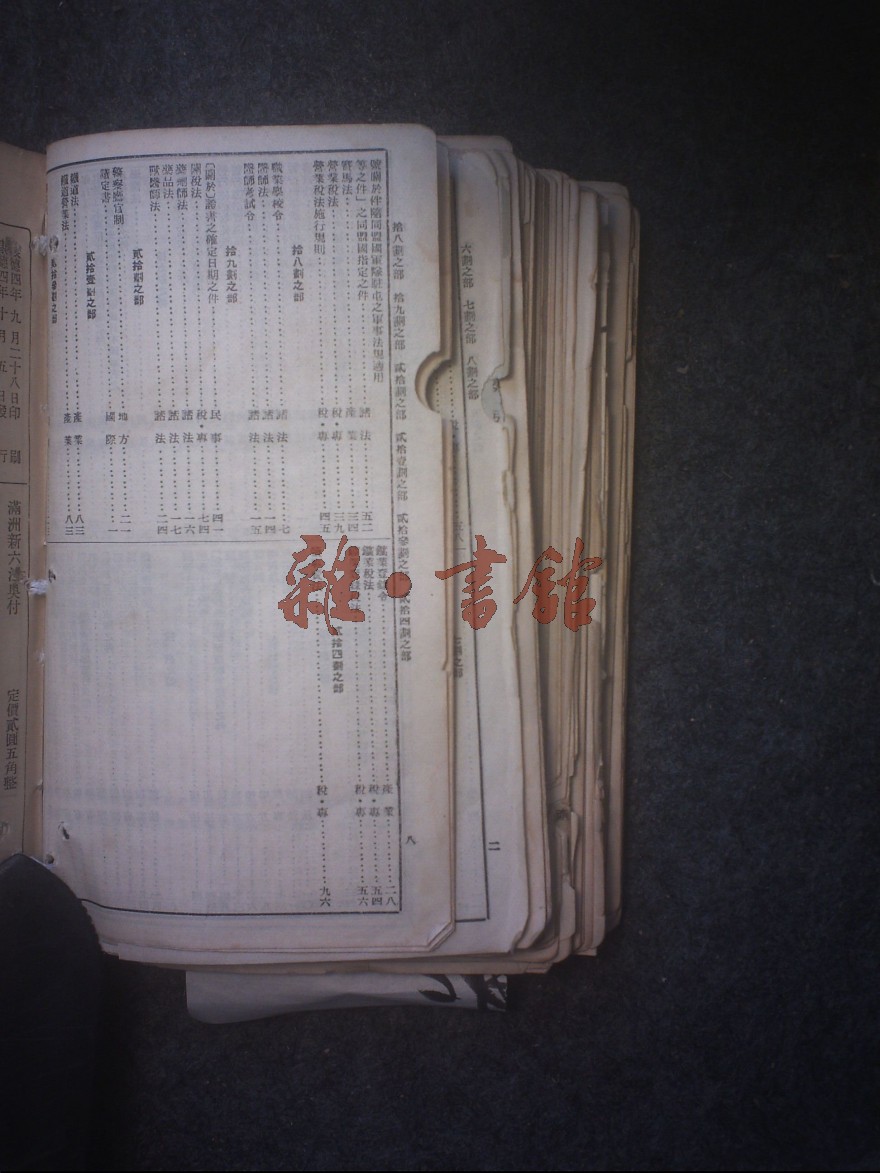 拾八劃之部 拾九劃之部 貳拾劃之部 貳拾壹劃之部 貳拾參劃之部 貳拾四劃之部
號關於伴隨同盟國軍隊駐屯之軍事法規適用
等之件」之同盟國指定之件 諸法 五二
賽馬法 產業 三四
營業稅法 稅・專 三九
營業稅法施行規則 稅・專 四五
拾八劃之部
職業學校令 諸法 七
醫師法 諸法 一四
醫師考試令 諸法 一五
拾九劃之部
〔關於〕證書之確定日期之件 民事 四一
關稅法 稅・專 七四
藥劑師法 諸法 一六
藥品法 諸法 一七
獸醫師法 諸法 二四
貳拾劃之部
警察廳官制 地方 二一
議定書 國際 一
貳拾壹劃之部
鐵道法 產業 八三
鐵道營業法 產業 八三
鑛業登錄令 產業 二八
鑛業稅法 稅・專 五四
稅・專 五六
貳拾四劃之部
稅・專 九六
八
六劃之部 七劃之部 八劃之部
二
四年九月二十八日印刷
四年十月五日發行
滿洲新六法奧付
定價貳圓五角整
雜・書館